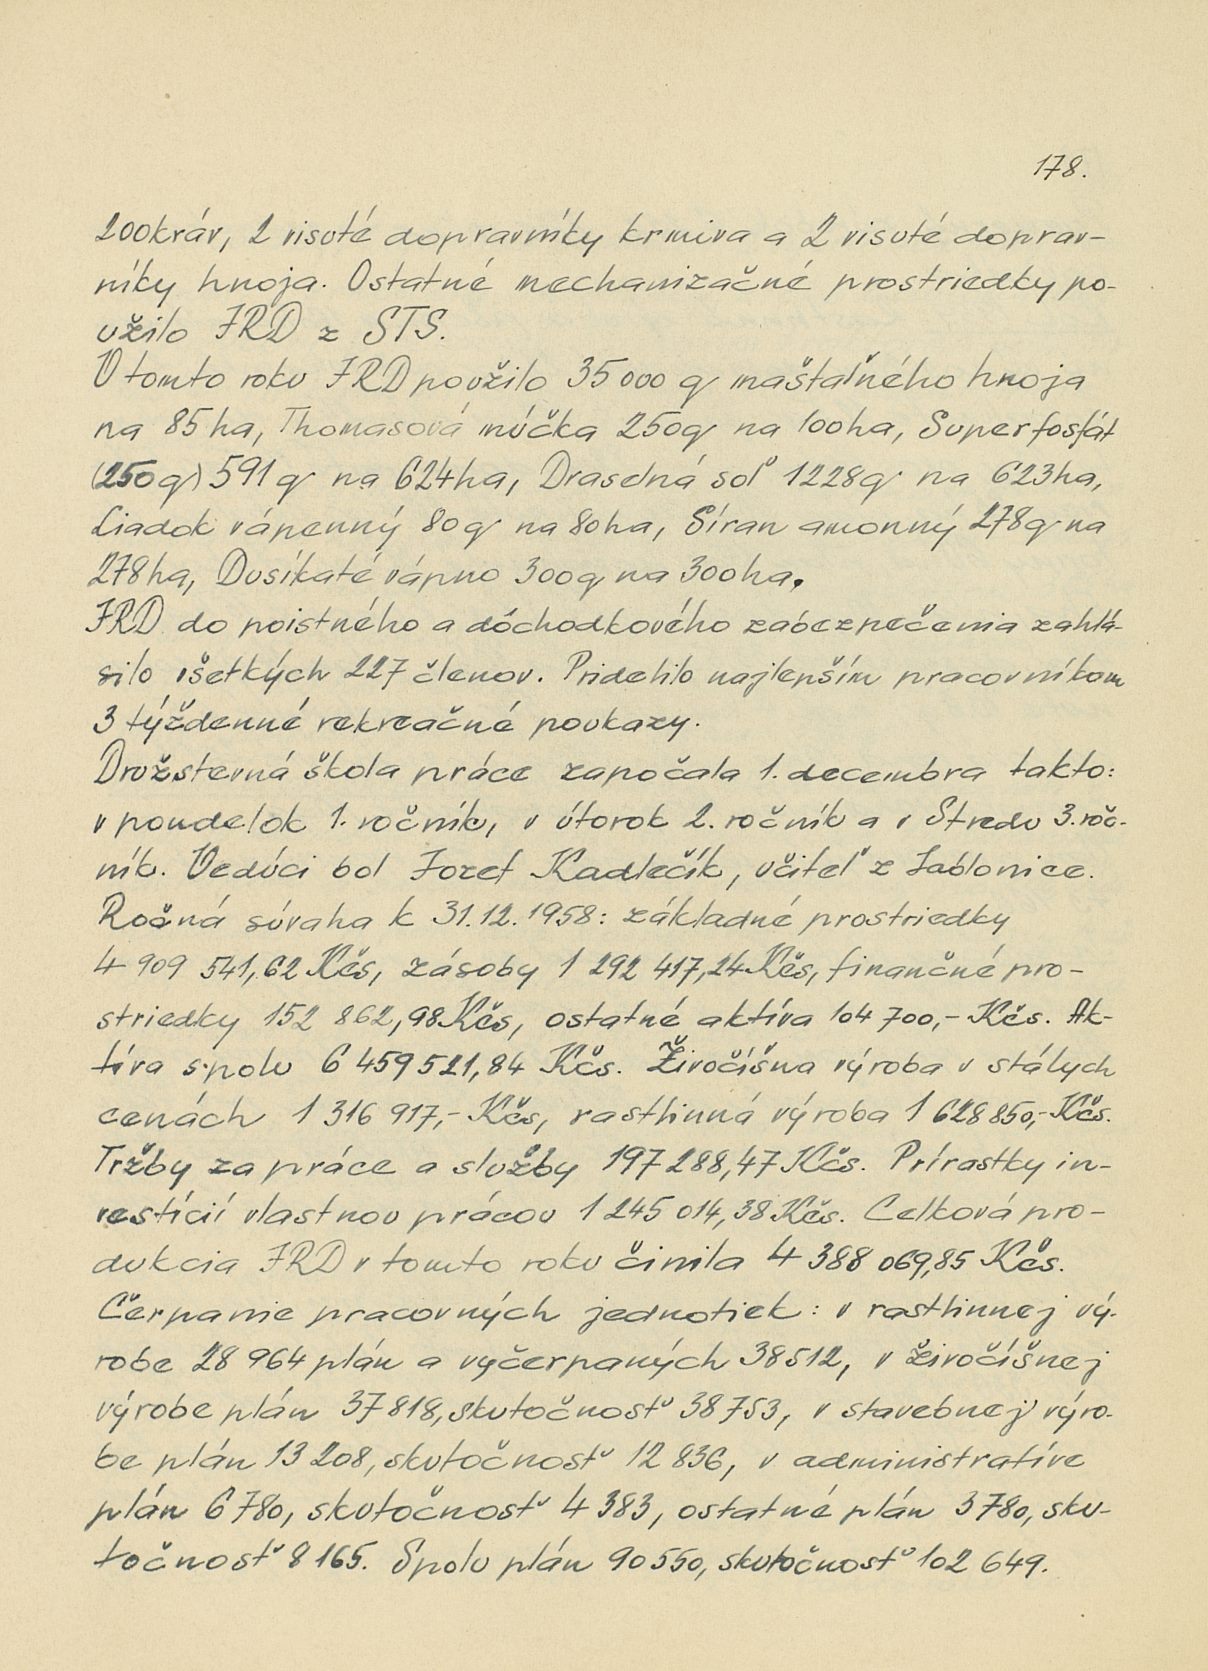 178.
200kráv, 2 visuté dopravníky krmiva a 2 visuté doprav-
níky hnoja. Ostatné mechanizačné prostriedky po-
užilo JRD z STS.
V tomto roku JRD použilo 35 000 q maštaľného hnoja
na 85 ha, Thomasová múčka 250q na 100ha, Superfosfát
(250q) 591 q na 624ha, Draselná soľ 1228q na 623ha,
Liadok vápenný 80q na 80ha, Síran amonný 278q na
278ha, Dusíkaté vápno 300q na 300ha.
JRD do poistného a dôchodkového zabezpečenia zahlá-
silo všetkých 227 členov. Pridelilo najlepším pracovníkom
3 týždenné rekreačné poukazy.
Družstevná škola práce započala 1. decembra takto:
v pondelok 1. ročník, v útorok 2. ročník a v Stredu 3. roč-
ník. Vedúci bol Jozef Kadlečík, učiteľ z Jablonice.
Ročná súvaha k 31.12.1958: základné prostriedky
4 909 541,62 Kčs, zásoby 1 292 417,24 Kčs, finančné pro-
striedky 152 862,98 Kčs, ostatné aktíva 104 700,- Kčs. Ak-
tíva spolu 6 459 521,84 Kčs. Živočíšna výroba v stálych
cenách 1 316 917,- Kčs, rastlinná výroba 1 628 850,- Kčs.
Tržby za práce a služby 197 288,47 Kčs. Prírastky in-
vestícií vlastnou prácou 1 245 014,38 Kčs. Celková pro-
dukcia JRD v tomto roku činila 4 388 069,85 Kčs.
Čerpanie pracovných jednotiek: v rastlinnej vý-
robe 28 964 plán a vyčerpaných 38512, v živočíšnej
výrobe plán 37 818, skutočnosť 38 753, v stavebnej výro-
be plán 13 208, skutočnosť 12 836, v administratíve
plán 6 780, skutočnosť 4 383, ostatné plán 3 780, sku-
točnosť 8 165. Spolu plán 90 550, skutočnosť 102 649.